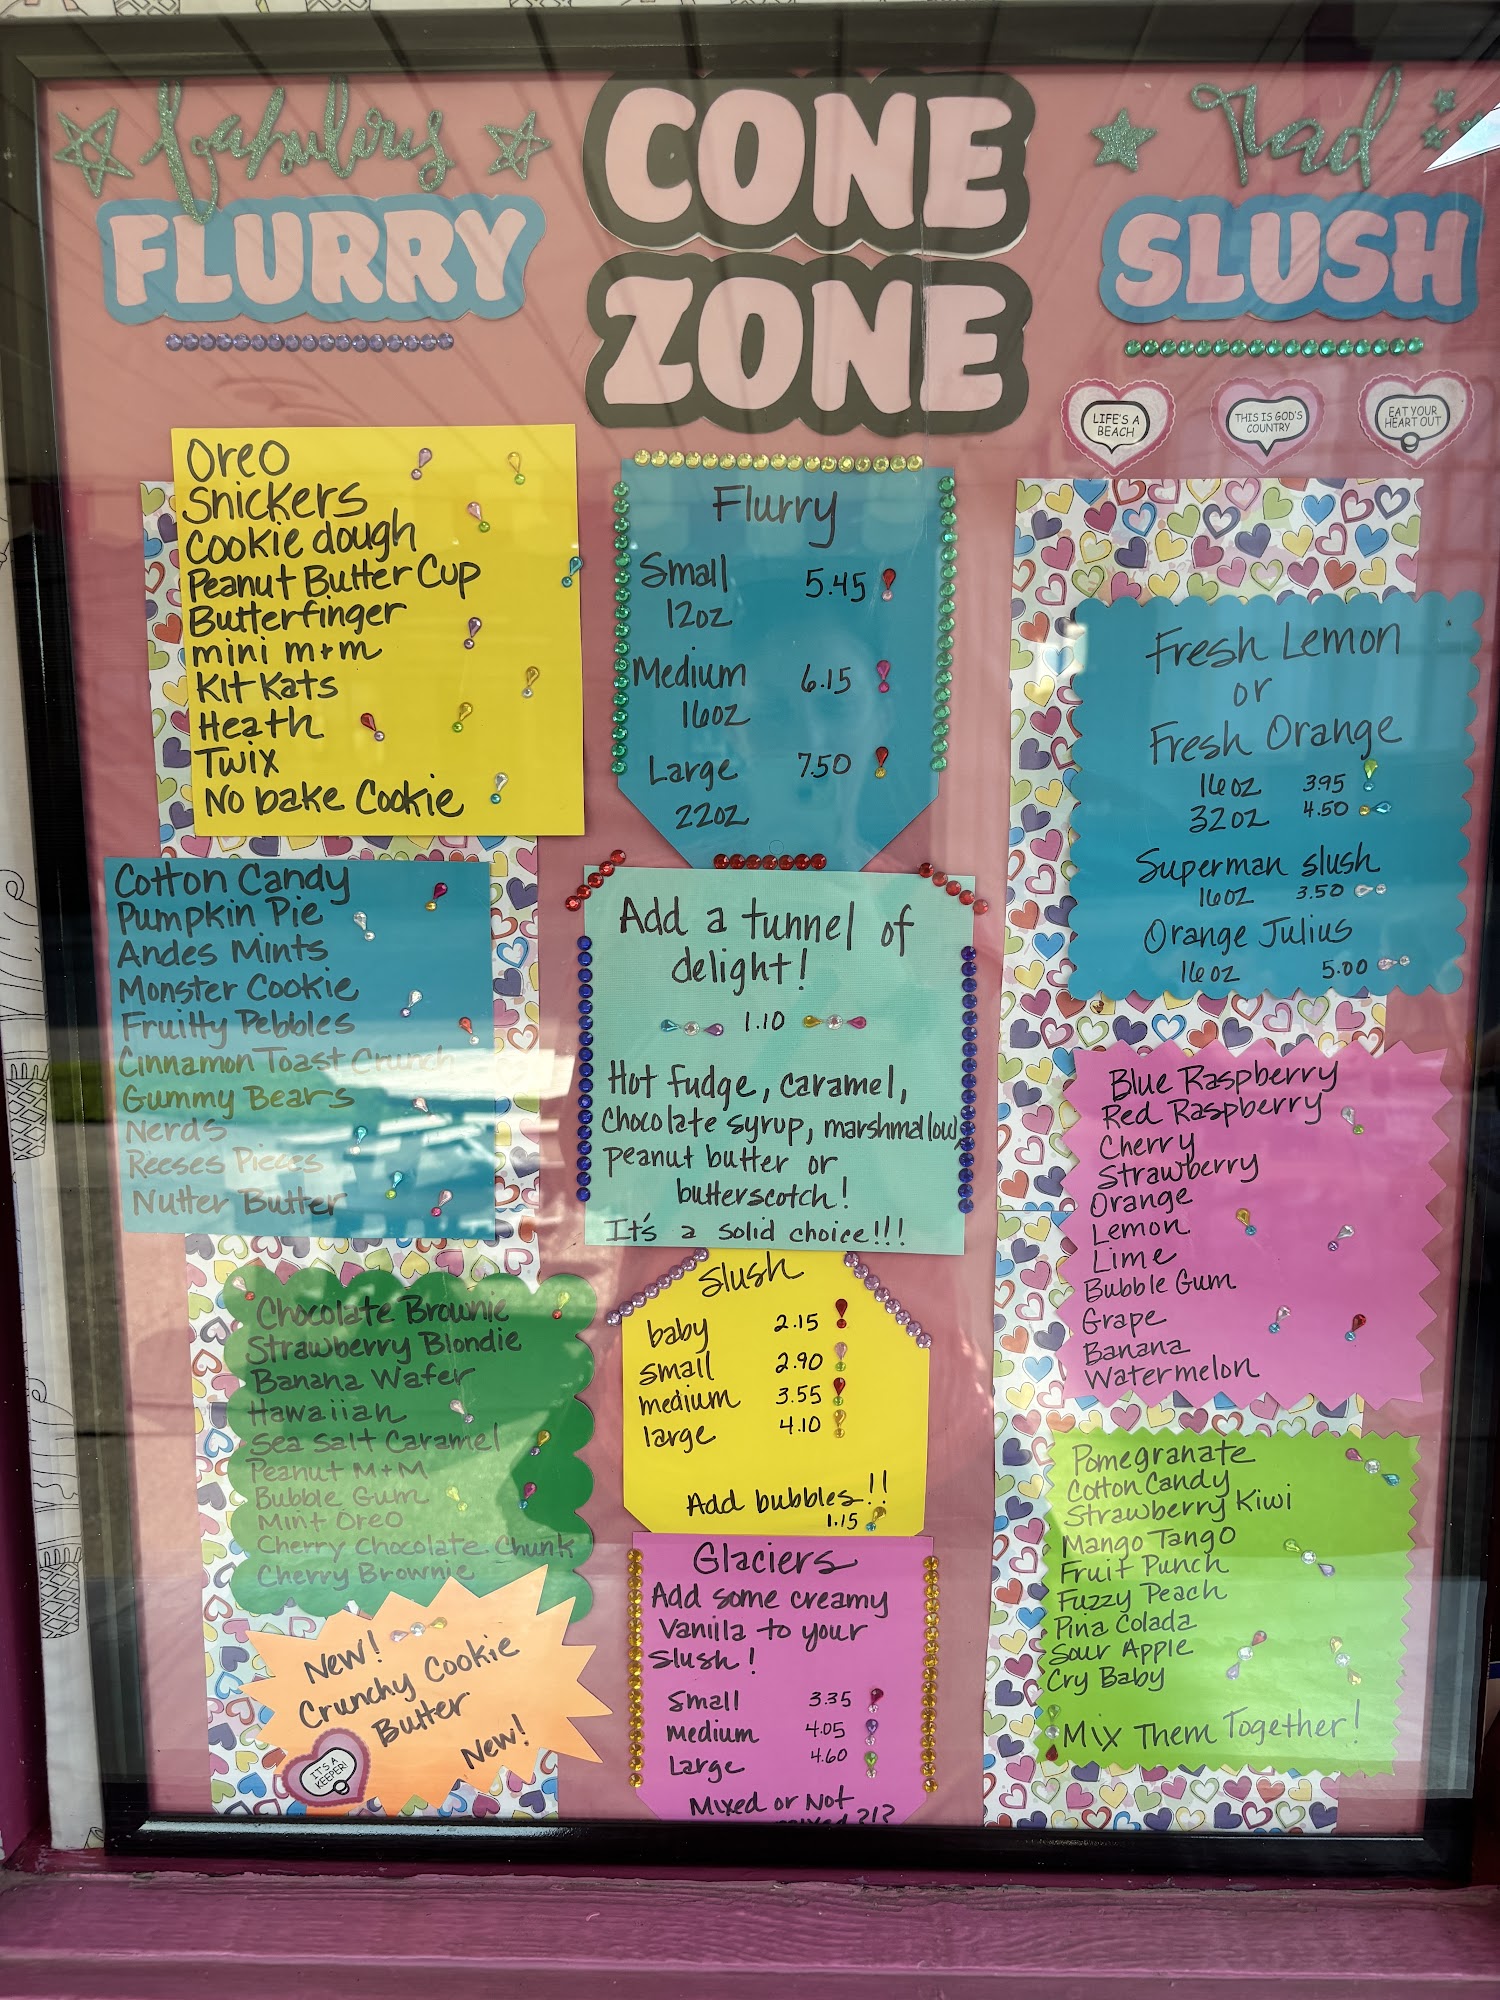 fabulous
FLURRY
CONE
ZONE
Rad
SLUSH
LIFE'S A
BEACH
THIS IS GOD'S
COUNTRY
EAT YOUR
HEART OUT
Oreo
Snickers
Cookie dough
Peanut Butter Cup
Butterfinger
mini m+m
Kit Kats
Heath
Twix
No bake Cookie
Cotton Candy
Pumpkin Pie
Andes Mints
Monster Cookie
Fruitty Pebbles
Cinnamon Toast Crunch
Gummy Bears
Nerds
Reeses Pieces
Nutter Butter
Chocolate Brownie
Strawberry Blondie
Banana Wafer
Hawaiian
Sea Salt Caramel
Peanut M+M
Bubble Gum
Mint Oreo
Cherry Chocolate Chunk
Cherry Brownie
New!
Crunchy Cookie
Butter
New!
IT'S A
KEEPER!
Flurry
Small 5.45
12oz
Medium 6.15
16oz
Large 7.50
22oz
Add a tunnel of
delight!
1.10
Hot fudge, caramel,
Chocolate syrup, marshmallow,
peanut butter or
butterscotch!
It's a solid choice!!!
Slush
baby 2.15
small 2.90
medium 3.55
large 4.10
Add bubbles!!
1.15
Glaciers
Add some creamy
Vanilla to your
Slush!
Small 3.35
medium 4.05
Large 4.60
Mixed or Not
Fresh Lemon
or
Fresh Orange
16oz 3.95
32oz 4.50
Superman slush
16oz 3.50
Orange Julius
16oz 5.00
Blue Raspberry
Red Raspberry
Cherry
Strawberry
Orange
Lemon
Lime
Bubble Gum
Grape
Banana
Watermelon
Pomegranate
Cotton Candy
Strawberry Kiwi
Mango Tango
Fruit Punch
Fuzzy Peach
Pina Colada
Sour Apple
Cry Baby
Mix Them Together!